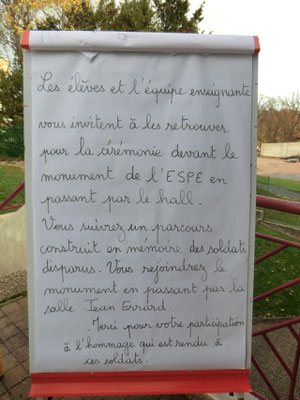 Les élèves et l'équipe enseignante
vous invitent à les retrouver
pour la cérémonie devant le
monument de l'ESPE en
passant par le hall.
Vous suivrez un parcours
construit en mémoire des soldats
disparus. Vous rejoindrez le
monument en passant par la
salle Jean Errard.
Merci pour votre participation
à l'hommage qui est rendu à
ces soldats.